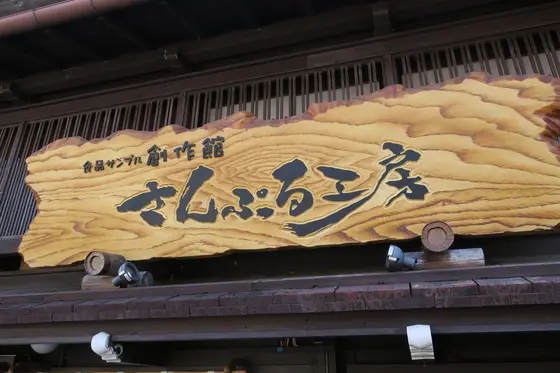 食品サンプル創作館
さんぷる工房